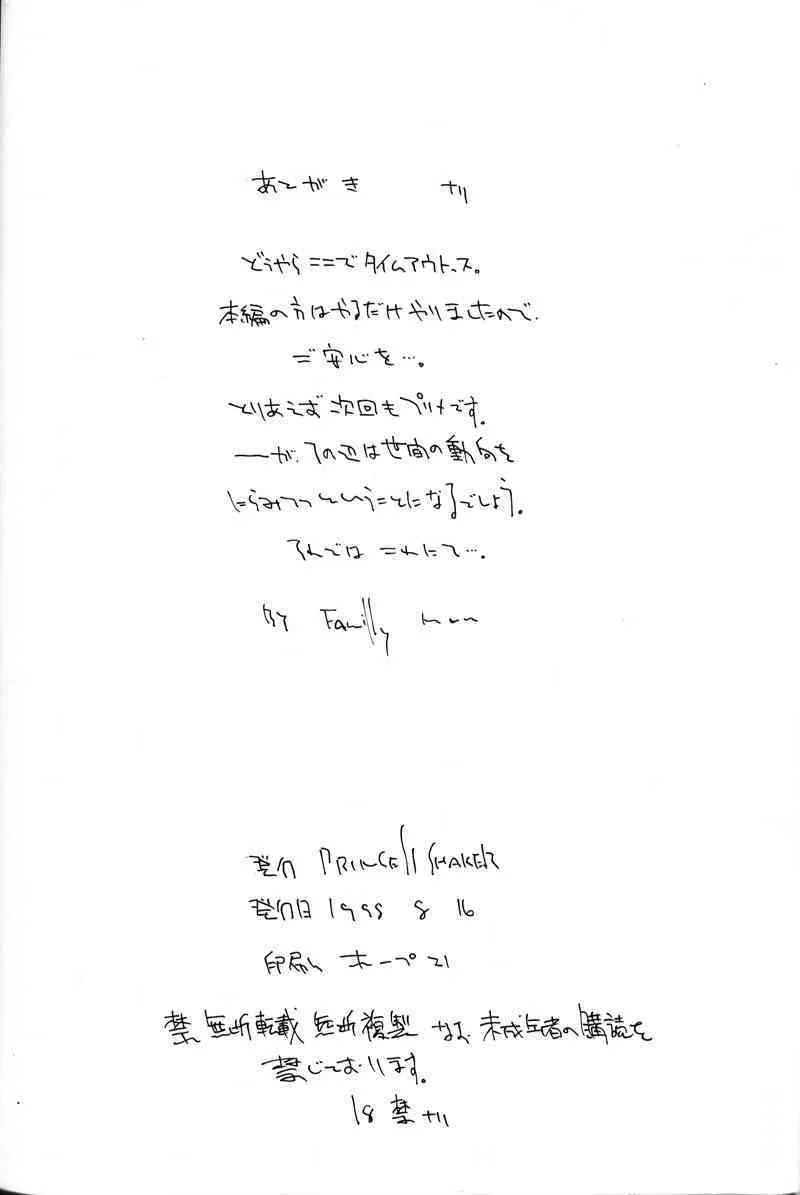 あとがき ナリ
どうやらここでタイムアウトス。
本編の方はやるだけやりましたので、
ご安心を…。
とりあえず次回もプリメです。
―が、その辺は世間の動向を
にらみつつということになるでしょう。
それでは これにて…。
BY Familly man
発行 PRINCESS SHAKER
発行日 1998 8 16
印刷 ホープ21
禁 無断転載 無断複製 なお、未成年者の購読を
禁じております。
18禁ナリ